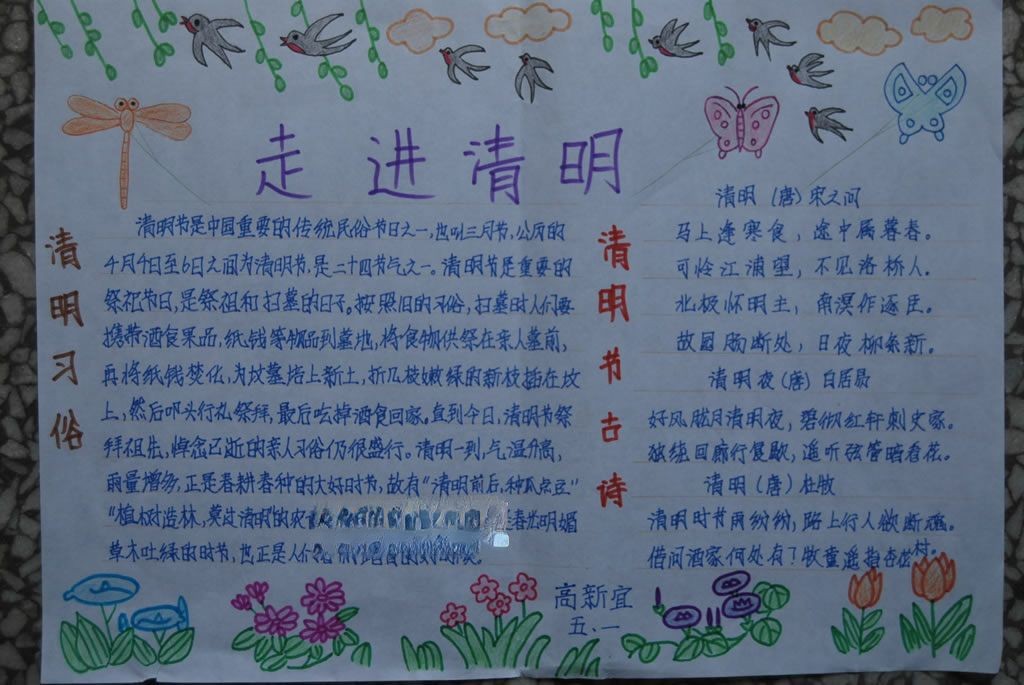 走进清明
清明习俗
清明节是中国重要的传统民俗节日之一,也叫三月节,公历的
4月4日至6日之间为清明节,是二十四节气之一。清明节是重要的
祭祀节日,是祭祖和扫墓的日子。按照旧的习俗,扫墓时人们要
携带酒食果品,纸钱等物品到墓地,将食物供祭在亲人墓前,
再将纸钱焚化,为坟墓培上新土,折几枝嫩绿的新枝插在坟
上,然后叩头行礼祭拜,最后吃掉酒食回家。直到今日,清明节祭
拜祖先,悼念已逝的亲人习俗仍很盛行。清明一到,气温升高,
雨量增多,正是春耕春种的大好时节,故有“清明前后,种瓜点豆”
“植树造林,莫过清明的农 春光明媚
草木吐绿的时节,也正是人们
清明节古诗
清明 (唐) 宋之问
马上逢寒食,途中属暮春。
可怜江浦望,不见洛桥人。
北极怀明主,南溟作逐臣。
故园肠断处,日夜柳条新。
清明夜 (唐) 白居易
好风胧月清明夜,碧砌红轩刺史家。
独绕回廊行复歇,遥听弦管暗看花。
清明 (唐) 杜牧
清明时节雨纷纷,路上行人欲断魂。
借问酒家何处有?牧童遥指杏花村。
高新宜
五.一